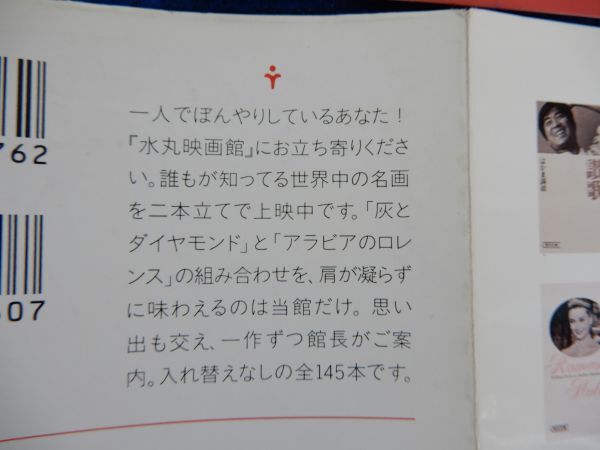 762
507
一人でぼんやりしているあなた!
『水丸映画館』にお立ち寄りくださ
い。誰もが知ってる世界中の名画
を二本立てで上映中です。「灰と
ダイヤモンド」と「アラビアのロレ
ンス」の組み合わせを、肩が凝らず
に味わえるのは当館だけ。思い
出も交え、一作ずつ館長がご案
内。入れ替えなしの全145本です。
讃歌